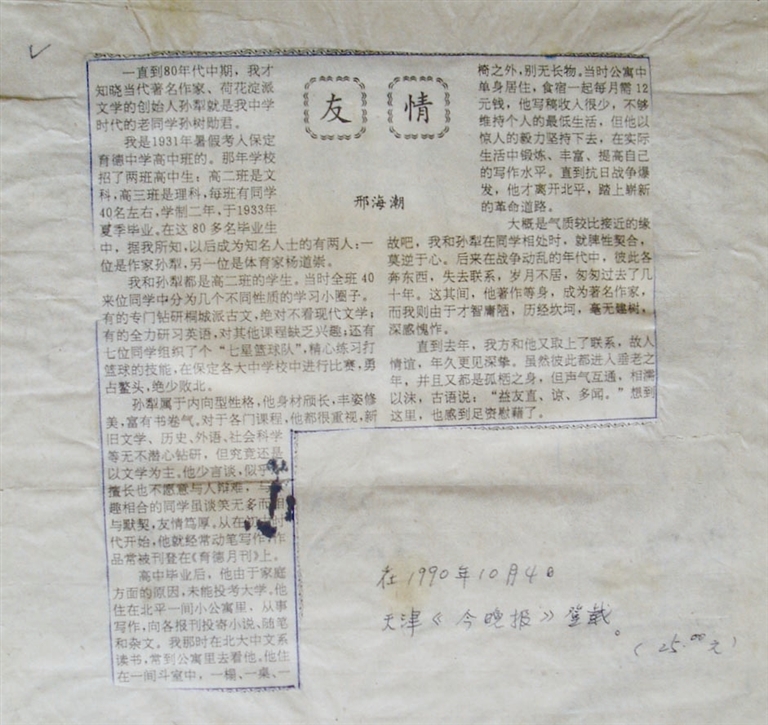 友情
邢海潮
一直到80年代中期，我才
知晓当代著名作家、荷花淀派
文学的创始人孙犁就是我中学
时代的老同学孙树勋君。
我是1931年暑假考入保定
育德中学高中班的。那年学校
招了两班高中生：高二班是文
科，高三班是理科，每班有同学
40名左右，学制二年，于1933年
夏季毕业。在这80多名毕业生
中，据我所知，以后成为知名人士的有两人：一
位是作家孙犁，另一位是体育家杨道崇。
我和孙犁都是高二班的学生。当时全班40
来位同学中分为几个不同性质的学习小圈子。
有的专门钻研桐城派古文，绝对不看现代文学；
有的全力研习英语，对其他课程缺乏兴趣；还有
七位同学组织了个“七星篮球队”，精心练习打
篮球的技能，在保定各大中学校中进行比赛，勇
占鳌头，绝少败北。
孙犁属于内向型性格，他身材颀长，丰姿修
美，富有书卷气。对于各门课程，他都很重视，新
旧文学、历史、外语、社会科学
等无不潜心钻研，但究竟还是
以文学为主。他少言谈，似乎
擅长也不愿意与人辩难，与
趣相合的同学虽谈笑无多而相
与默契，友情笃厚。从在
代开始，他就经常动笔写作，作
品常被刊登在《育德月刊》上。
高中毕业后，他由于家庭
方面的原因，未能投考大学。他
住在北平一间小公寓里，从事
写作，向各报刊投寄小说、随笔
和杂文。我那时在北大中文系
读书，常到公寓里去看他。他住
在一间斗室中，一榻、一桌、一
椅之外，别无长物。当时公寓中
单身居住，食宿一起每月需12
元钱，他写稿收入很少，不够
维持个人的最低生活，但他以
惊人的毅力坚持下去，在实际
生活中锻炼、丰富、提高自己
的写作水平。直到抗日战争爆
发，他才离开北平，踏上崭新
的革命道路。
大概是气质较比接近的缘
故吧，我和孙犁在同学相处时，就脾性契合，
莫逆于心。后来在战争动乱的年代中，彼此各
奔东西，失去联系，岁月不居，匆匆过去了几
十年。这其间，他著作等身，成为著名作家，
而我则由于才智庸陋，历经坎坷，毫无建树，
深感愧怍。
直到去年，我方和他又取上了联系，故人
情谊，年久更见深挚。虽然彼此都进入垂老之
年，并且又都是孤栖之身，但声气互通，相濡
以沫，古语说：“益友直、谅、多闻。”想到
这里，也感到足资慰藉了。
在1990年10月4日
天津《今晚报》登载。
（25.00元）